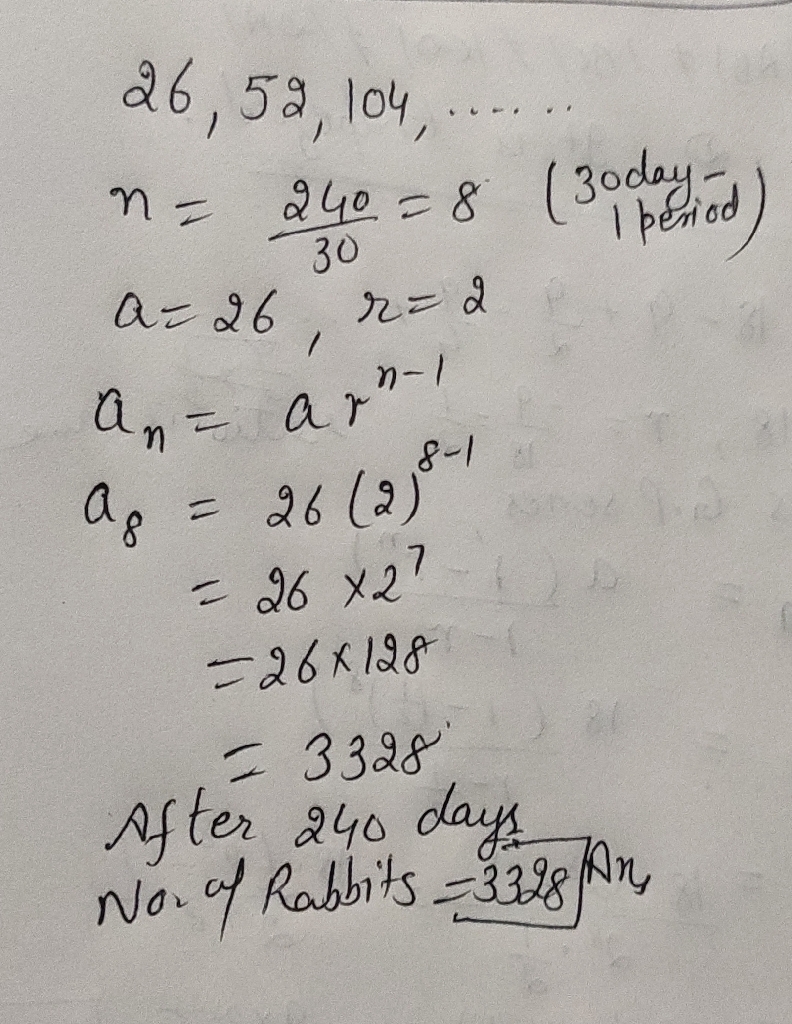 26, 52, 104, ......
n = 240/30 = 8 (30day - 1 period)
a = 26, r = 2
aₙ = a rⁿ⁻¹
a₈ = 26 (2)⁸⁻¹
= 26 × 2⁷
= 26 × 128
= 3328
After 240 days
No. of Rabbits = 3328 Ans